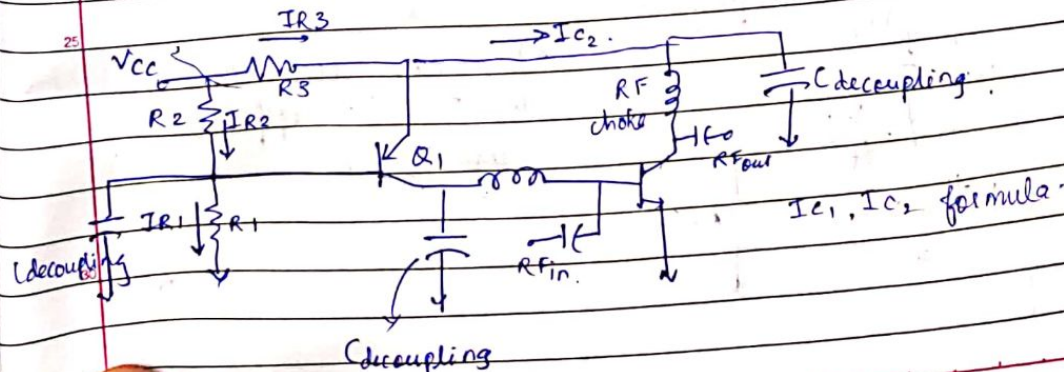 IR3
25
VCC
R3
Ic2.
RF
choke
Cdecoupling.
R2
IR2
Q1
RFout
Ic1, Ic2 formula.
IR1
R1
Cdecoupling
RFin.
Cdecoupling